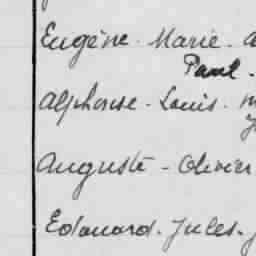 Eugène - Marie -
Paul -
Alphonse - Louis -
Auguste - Olivier
Edouard - Jules -